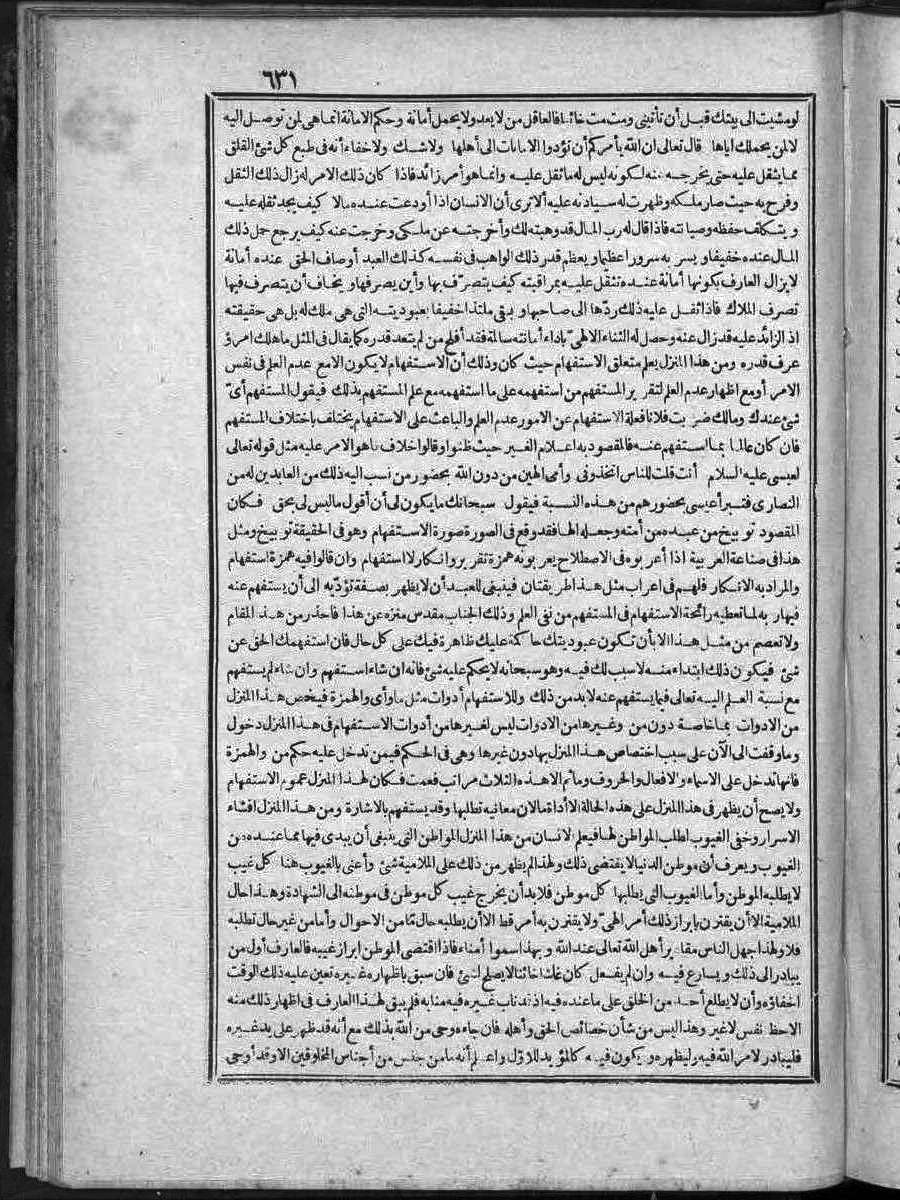 ٦٣١
لو مشيت الى بيتك قبل أن تأتينى ومت مت خائنا فالعاقل من لا يعد ولا يحمل أمانة وحكم الامانة انما هى لمن توصل اليه
لا لمن يحملك اياها قال تعالى ان الله يأمركم أن تؤدوا الامانات الى أهلها ولا شك ولا خفاء أنه فى طبع كل شئ القلق
مما يثقل عليه حتى يخرجه عنه لكونه ليس له ما ثقل عليه وانما هو أمر زائد فاذا كان ذلك الامر له زال ذلك الثقل
وفرح به حيث صار ملكه وظهرت له سيادته عليه ألا ترى أن الانسان اذا أودعت عنده مالا كيف يجد ثقله عليه
ويتكلف حفظه وصيانته فاذا قال له رب المال قد وهبته لك وأخرجته عن ملكى وخرجت عنه كيف يرجع حمل ذلك
المال عنده خفيفا ويسر به سرورا عظيما ويعظم قدر ذلك الواهب فى نفسه كذلك العبد أوصاف الحق عنده أمانة
لا يزال العارف بكونها أمانة عنده تثقل عليه بمراقبته كيف يتصرف بها وأين يصرفها ويخاف أن يتصرف فيها
تصرف الملاك فاذا ثقل عليه ذلك ردّها الى صاحبها وبقى ملتذا خفيفا بعبوديته التى هى ملك له بل هى حقيقته
اذ الزائد عليه قد زال عنه وحصل له الثناء الالهىّ باداء أمانته سالمة فقد أفلح من لم يتعد قدره كما يقال فى المثل ما هلك امرؤ
عرف قدره ومن هذا المنزل يعلم متعلق الاستفهام حيث كان وذلك أن الاستفهام لا يكون الا مع عدم العلم فى نفس
الامر أو مع اظهار عدم العلم لتقرير المستفهم من استفهمه على ما استفهمه مع علم المستفهم بذلك فيقول المستفهم أىّ
شئ عندك ومالك ضربت فلانا فعلة الاستفهام عن الامور عدم العلم والباعث على الاستفهام يختلف باختلاف المستفهم
فان كان عالما بما استفهم عنه فالمقصود به اعلام الغير حيث ظنوا وقالوا خلاف ما هو الامر عليه مثل قوله تعالى
لعيسى عليه السلام أأنت قلت للناس اتخذونى وأمى الهين من دون الله بحضور من نسب اليه ذلك من العابدين له من
النصارى فتبرأ عيسى بحضورهم من هذه النسبة فيقول سبحانك ما يكون لى أن أقول ما ليس لى بحق فكان
المقصود توبيخ من عبده من أمته وجعله الها فقد وقع فى الصورة صورة الاستفهام وهو فى الحقيقة توبيخ ومثل
هذا فى صناعة العربية اذا أعربوه فى الاصطلاح يعربونه همزة تقرير وانكار لا استفهام وان قالوا فيه همزة استفهام
والمراد به الانكار فلهم فى اعراب مثل هذا طريقتان فينبغى للعبد أن لا يظهر بصفة تؤدّيه الى أن يستفهم عنه
فيها ربه لما تعطيه رائحة الاستفهام فى المستفهم من نفى العلم وذلك الجناب مقدس منزه عن هذا فاحذر من هذا المقام
ولا تعصم من مثل هذا الا بأن تكون عبوديتك حاكمة عليك ظاهرة فيك على كل حال فان استفهمك الحق عن
شئ فيكون ذلك ابتداء منه لا سبب لك فيه وهو سبحانه لا يحكم عليه شئ فانه ان شاء استفهم وان شاء لم يستفهم
مع نسبة العلم اليه تعالى فيما يستفهم عنه لا بد من ذلك وللاستفهام أدوات مثل ما وأى والهمزة فيخص هذا المنزل
من الادوات بما خاصة دون من وغيرها من الادوات ليس لغيرها من أدوات الاستفهام فى هذا المنزل دخول
وما وقفت الى الآن على سبب اختصاص هذا المنزل بها دون غيرها وهى فى الحكم فيمن تدخل عليه حكم من والهمزة
فانها تدخل على الاسماء والافعال والحروف وما ثم الا هذه الثلاث مراتب فعمت فكان لهذا المنزل عموم الاستفهام
ولا يصح أن يظهر فى هذا المنزل على هذه الحالة الا أداة ما لان معانيه تطلبها وقد يستفهم بالاشارة ومن هذا المنزل افشاء
الاسرار وخفى الغيوب لطلب المواطن لها فيعلم الانسان من هذا المنزل المواطن التى ينبغى أن يبدى فيها مما عنده من
الغيوب ويعرف أن موطن الدنيا لا يقتضى ذلك ولهذا لم يظهر من ذلك على الملامية شئ وأعنى بالغيوب هنا كل غيب
لا يطلبه الموطن وأما الغيوب التى يطلبها كل موطن فلا بد أن يخرج غيب كل موطن فى موطنه الى الشهادة وهذا حال
الملامية الا أن يقترن بابراز ذلك أمر الهىّ ولا يقترن به أمر قط الا أن يطلبه حال مّا من الاحوال وأما من غير حال تطلبه
فلا ولهذا جهل الناس مقادير أهل الله تعالى عند الله وبهذا سموا أمناء فاذا اقتضى الموطن ابراز غيبه فالعارف أول من
يبادر الى ذلك ويسارع فيه وان لم يفعل كان غاشا خائنا لا يصلح لشئ فان سبق باظهاره غيره تعين عليه ذلك الوقت
اخفاؤه وأن لا يطلع أحد من الخلق على ما عنده فيه اذ قد ناب غيره فيه منابه فلم يبق لهذا العارف فى اظهار ذلك منه
الا حظ نفس لا غير وهذا ليس من شأن خصائص الحق وأهله فان جاءه وحى من الله بذلك مع أنه قد ظهر على يد غيره
فليبادر لامر الله فيه وليظهره ويكون فيه كالمؤيد للاوّل واعلم أنه ما من جنس من أجناس المخلوقين الا وقد أوحى